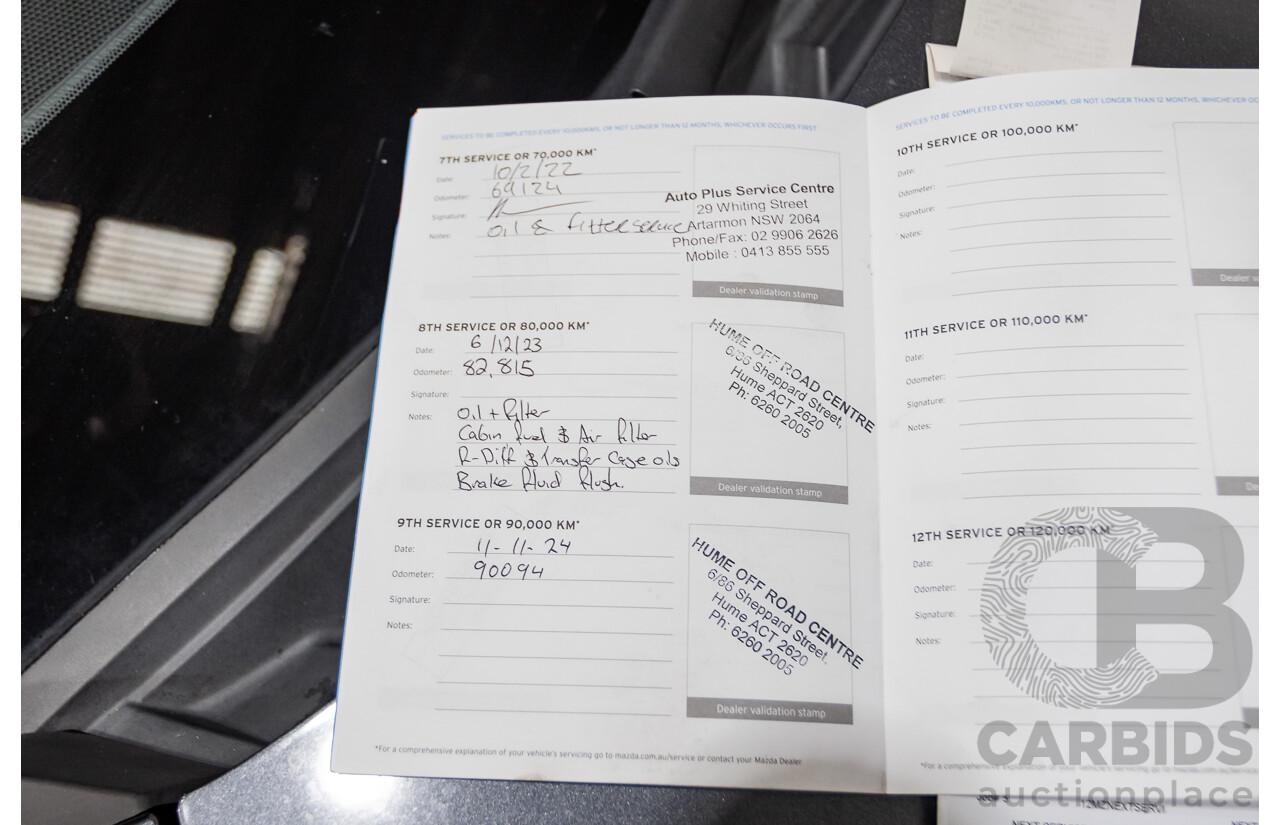 SERVICES TO BE COMPLETED EVERY 10,000KMS, OR NOT LONGER THAN 12 MONTHS, WHICHEVER OCCURS FIRST
7TH SERVICE OR 70,000 KM*
Date: 10/2/22
Odometer: 69124
Signature:
Notes: Oil & filter service
Auto Plus Service Centre
29 Whiting Street
Artarmon NSW 2064
Phone/Fax: 02 9906 2626
Mobile : 0413 855 555
Dealer validation stamp
8TH SERVICE OR 80,000 KM*
Date: 6/12/23
Odometer: 82,815
Signature:
Notes: Oil + Filter
Cabin fuel & Air filter
R-Diff & Transfer Case oils
Brake fluid flush.
HUME OFF ROAD CENTRE
6/86 Sheppard Street,
Hume ACT 2620
Ph: 6260 2005
Dealer validation stamp
9TH SERVICE OR 90,000 KM*
Date: 11-11-24
Odometer: 90094
Signature:
Notes:
HUME OFF ROAD CENTRE
6/86 Sheppard Street,
Hume ACT 2620
Ph: 6260 2005
Dealer validation stamp
*For a comprehensive explanation of your vehicle's servicing go to mazda.com.au/service or contact your Mazda Dealer
SERVICES TO BE COMPLETED EVERY 10,000KMS, OR NOT LONGER THAN 12 MONTHS, WHICHEVER OC
10TH SERVICE OR 100,000 KM*
Date:
Odometer:
Signature:
Notes:
Dealer va
11TH SERVICE OR 110,000 KM*
Date:
Odometer:
Signature:
Notes:
De
12TH SERVICE OR 120,000 KM*
Date:
Odometer:
Signature:
Notes:
CB
CARBIDS
auctionplace